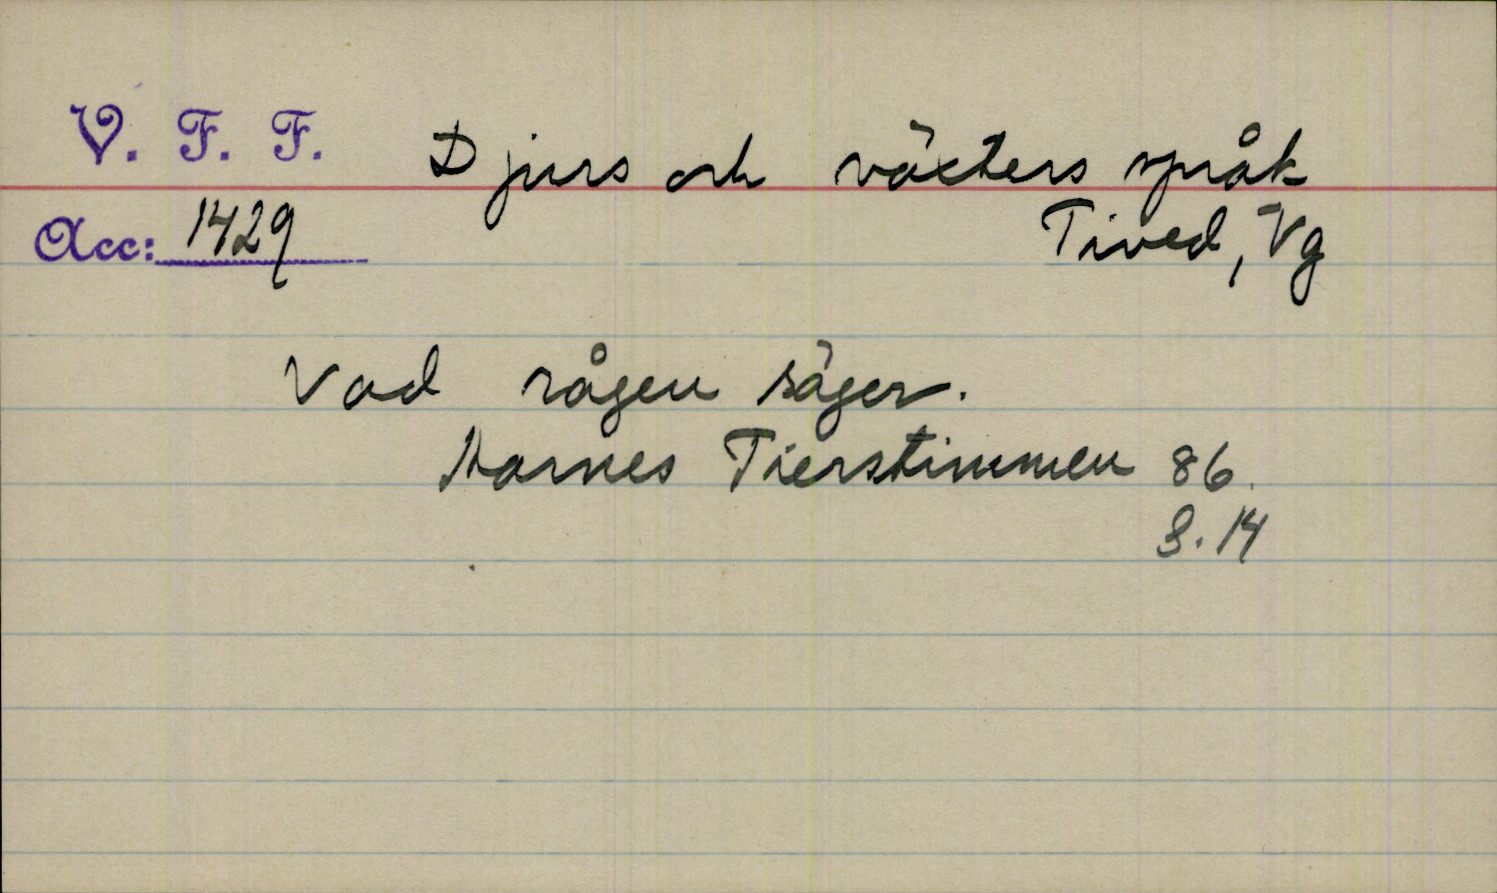 V. F. F. Djurs och växters språk
Acc: 1429 Tived, Vg
Vad rågen säger.
Aarnes Tierstimmen 86.
S. 14